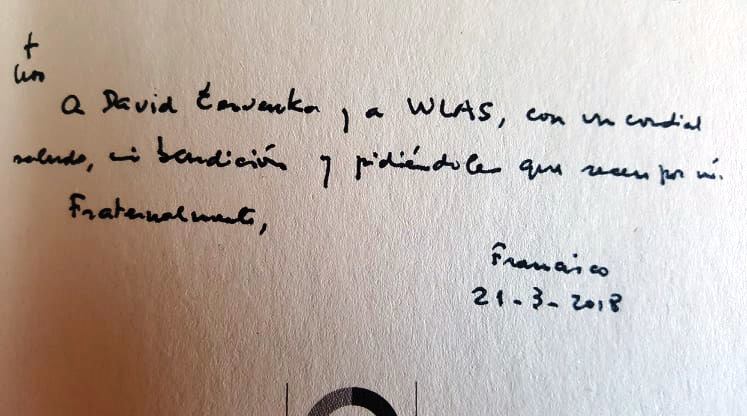 +
A David Červenka y a WLAS, con un cordial
saludo, mi bendición y pidiéndoles que recen por mí.
Fraternalmente,
Francisco
21-3-2018